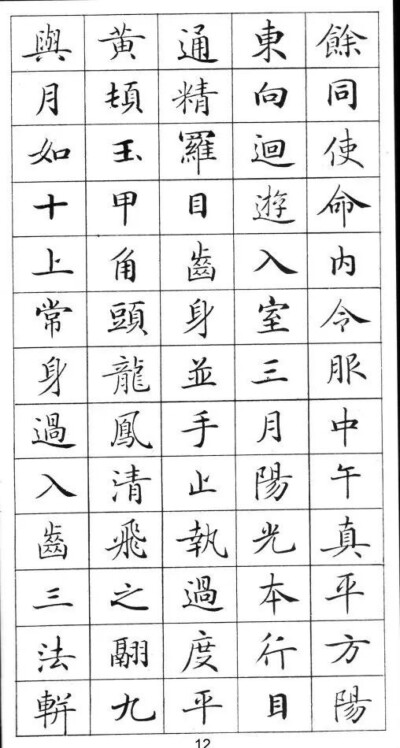 餘同使命内令服中午真平方陽
東向迴遊入室三月陽光本行目
通精羅目齒身並手止執過度平
黄頓玉甲角頭龍鳳清飛之翮九
與月如十上常身過入齒三法輧
12